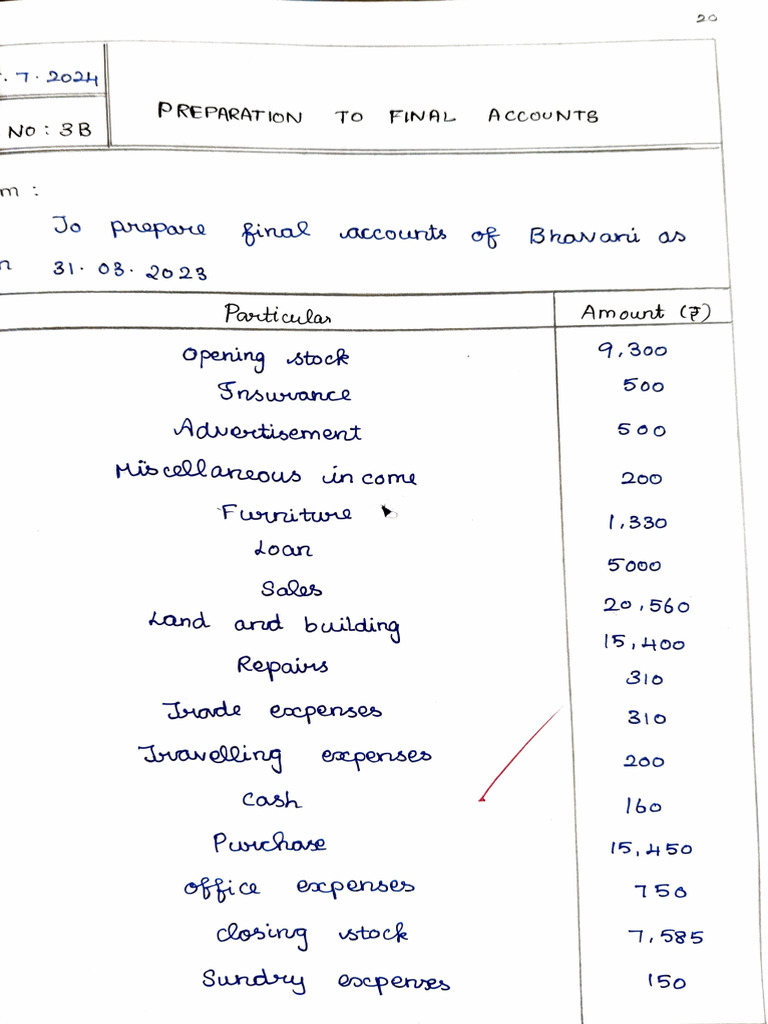 20
. 7. 2024
NO: 3B
PREPARATION TO FINAL ACCOUNTS
m :
To prepare final accounts of Bhavani as
n 31. 03. 2023
Particular Amount (₹)
Opening stock 9,300
Insurance 500
Advertisement 500
Miscellaneous income 200
Furniture 1,330
Loan 5000
Sales 20,560
Land and building 15,400
Repairs 310
Trade expenses 310
Travelling expenses 200
Cash 160
Purchase 15,450
Office expenses 750
Closing stock 7,585
Sundry expenses 150